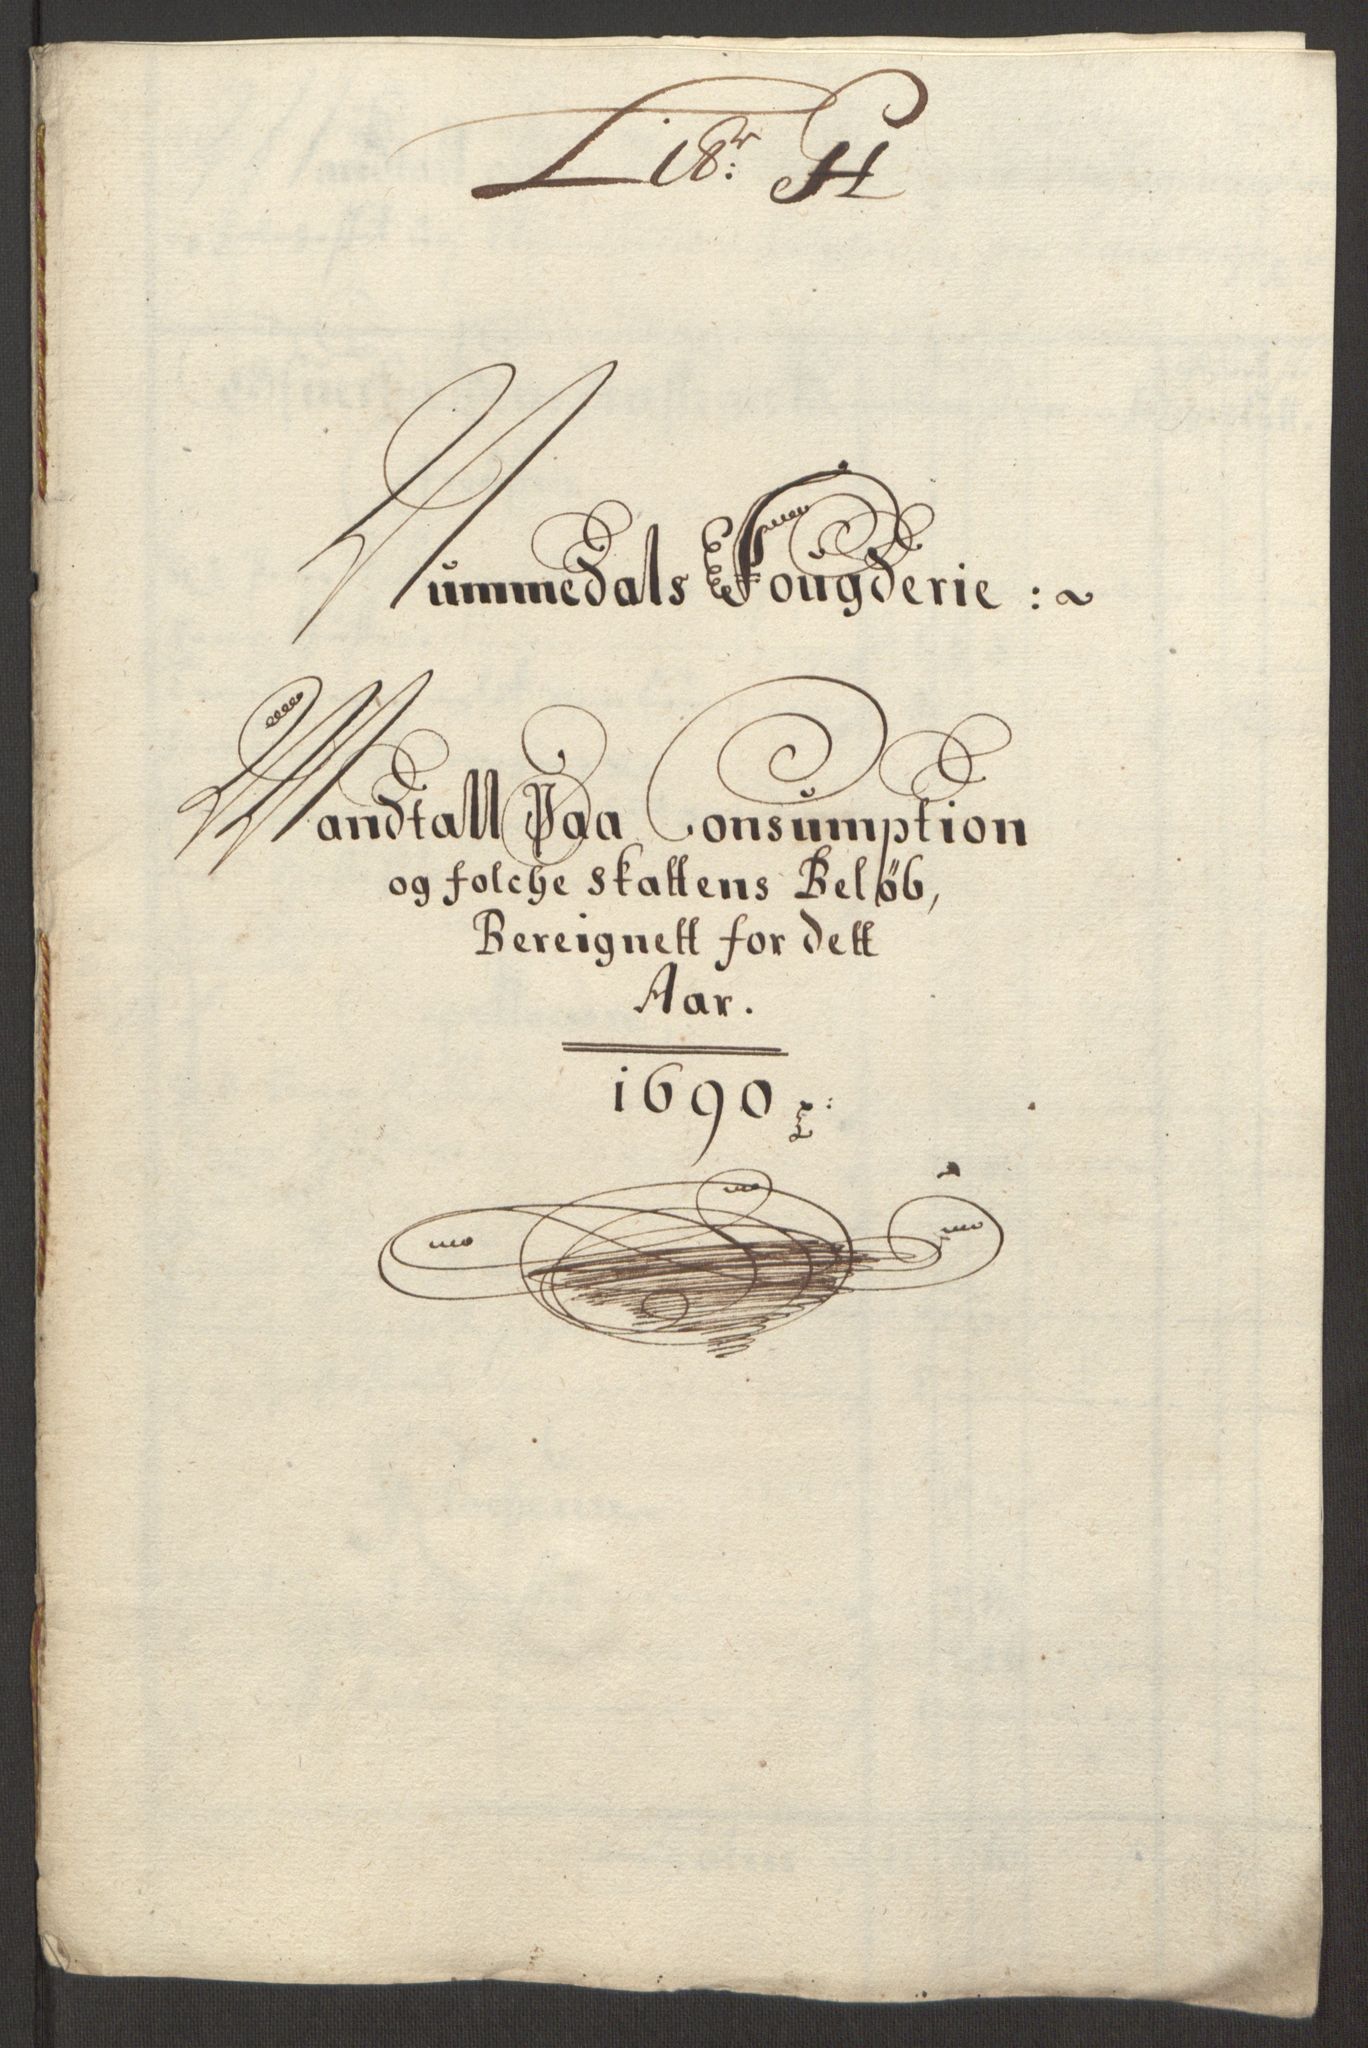 Litr: H
Nummedals Fougderie : ~
Mandtall Paa Consumption
og folche skattens Beløb,
Bereignett for dett
Aar.
1690